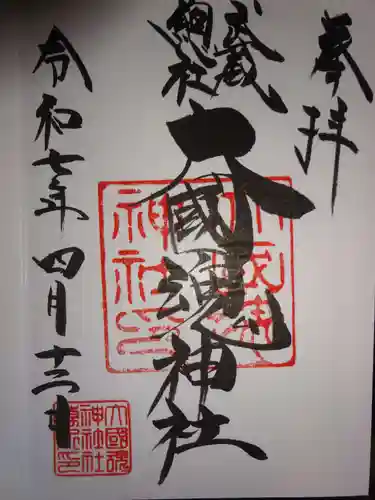 奉拝
武蔵
總社
大國魂神社
令和七年四月十三日
神社印
大國魂
神社社
務所印